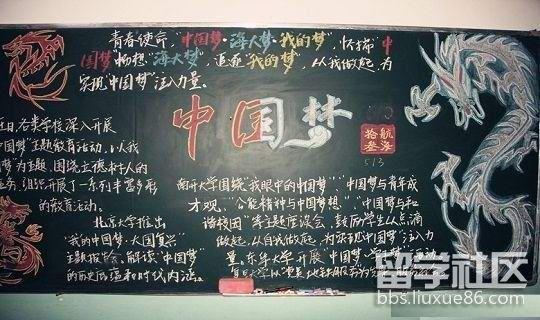 青春使命，"中国梦·海人梦·我的梦"，怀揣"中
国梦"畅想"海大梦"，追逐"我的梦"，从我做起 为
实现"中国梦"注入力量。
中国梦
拾航
叁海
513
近日，各类学校深入开展
中国梦"主题教育活动，以"我
梦"为主题，围绕立德树人的
任务，组织开展了一系列丰富多彩
的教育活动。
北京大学推出
"我的中国梦·大国复兴"
主题报告会，解读"中国梦"
的历史底蕴和时代内涵。
南开大学围绕"我眼中的中国梦"、"中国梦与青年成
才观"、"公能精神与中国梦想"、"中国梦与和
谐校园"等主题座谈会，鼓励学生从点滴
做起，从自我做起，为实现中国梦注入力
量。东华大学开展"中国梦 活动
留学社区
bbs.liuxue86.com